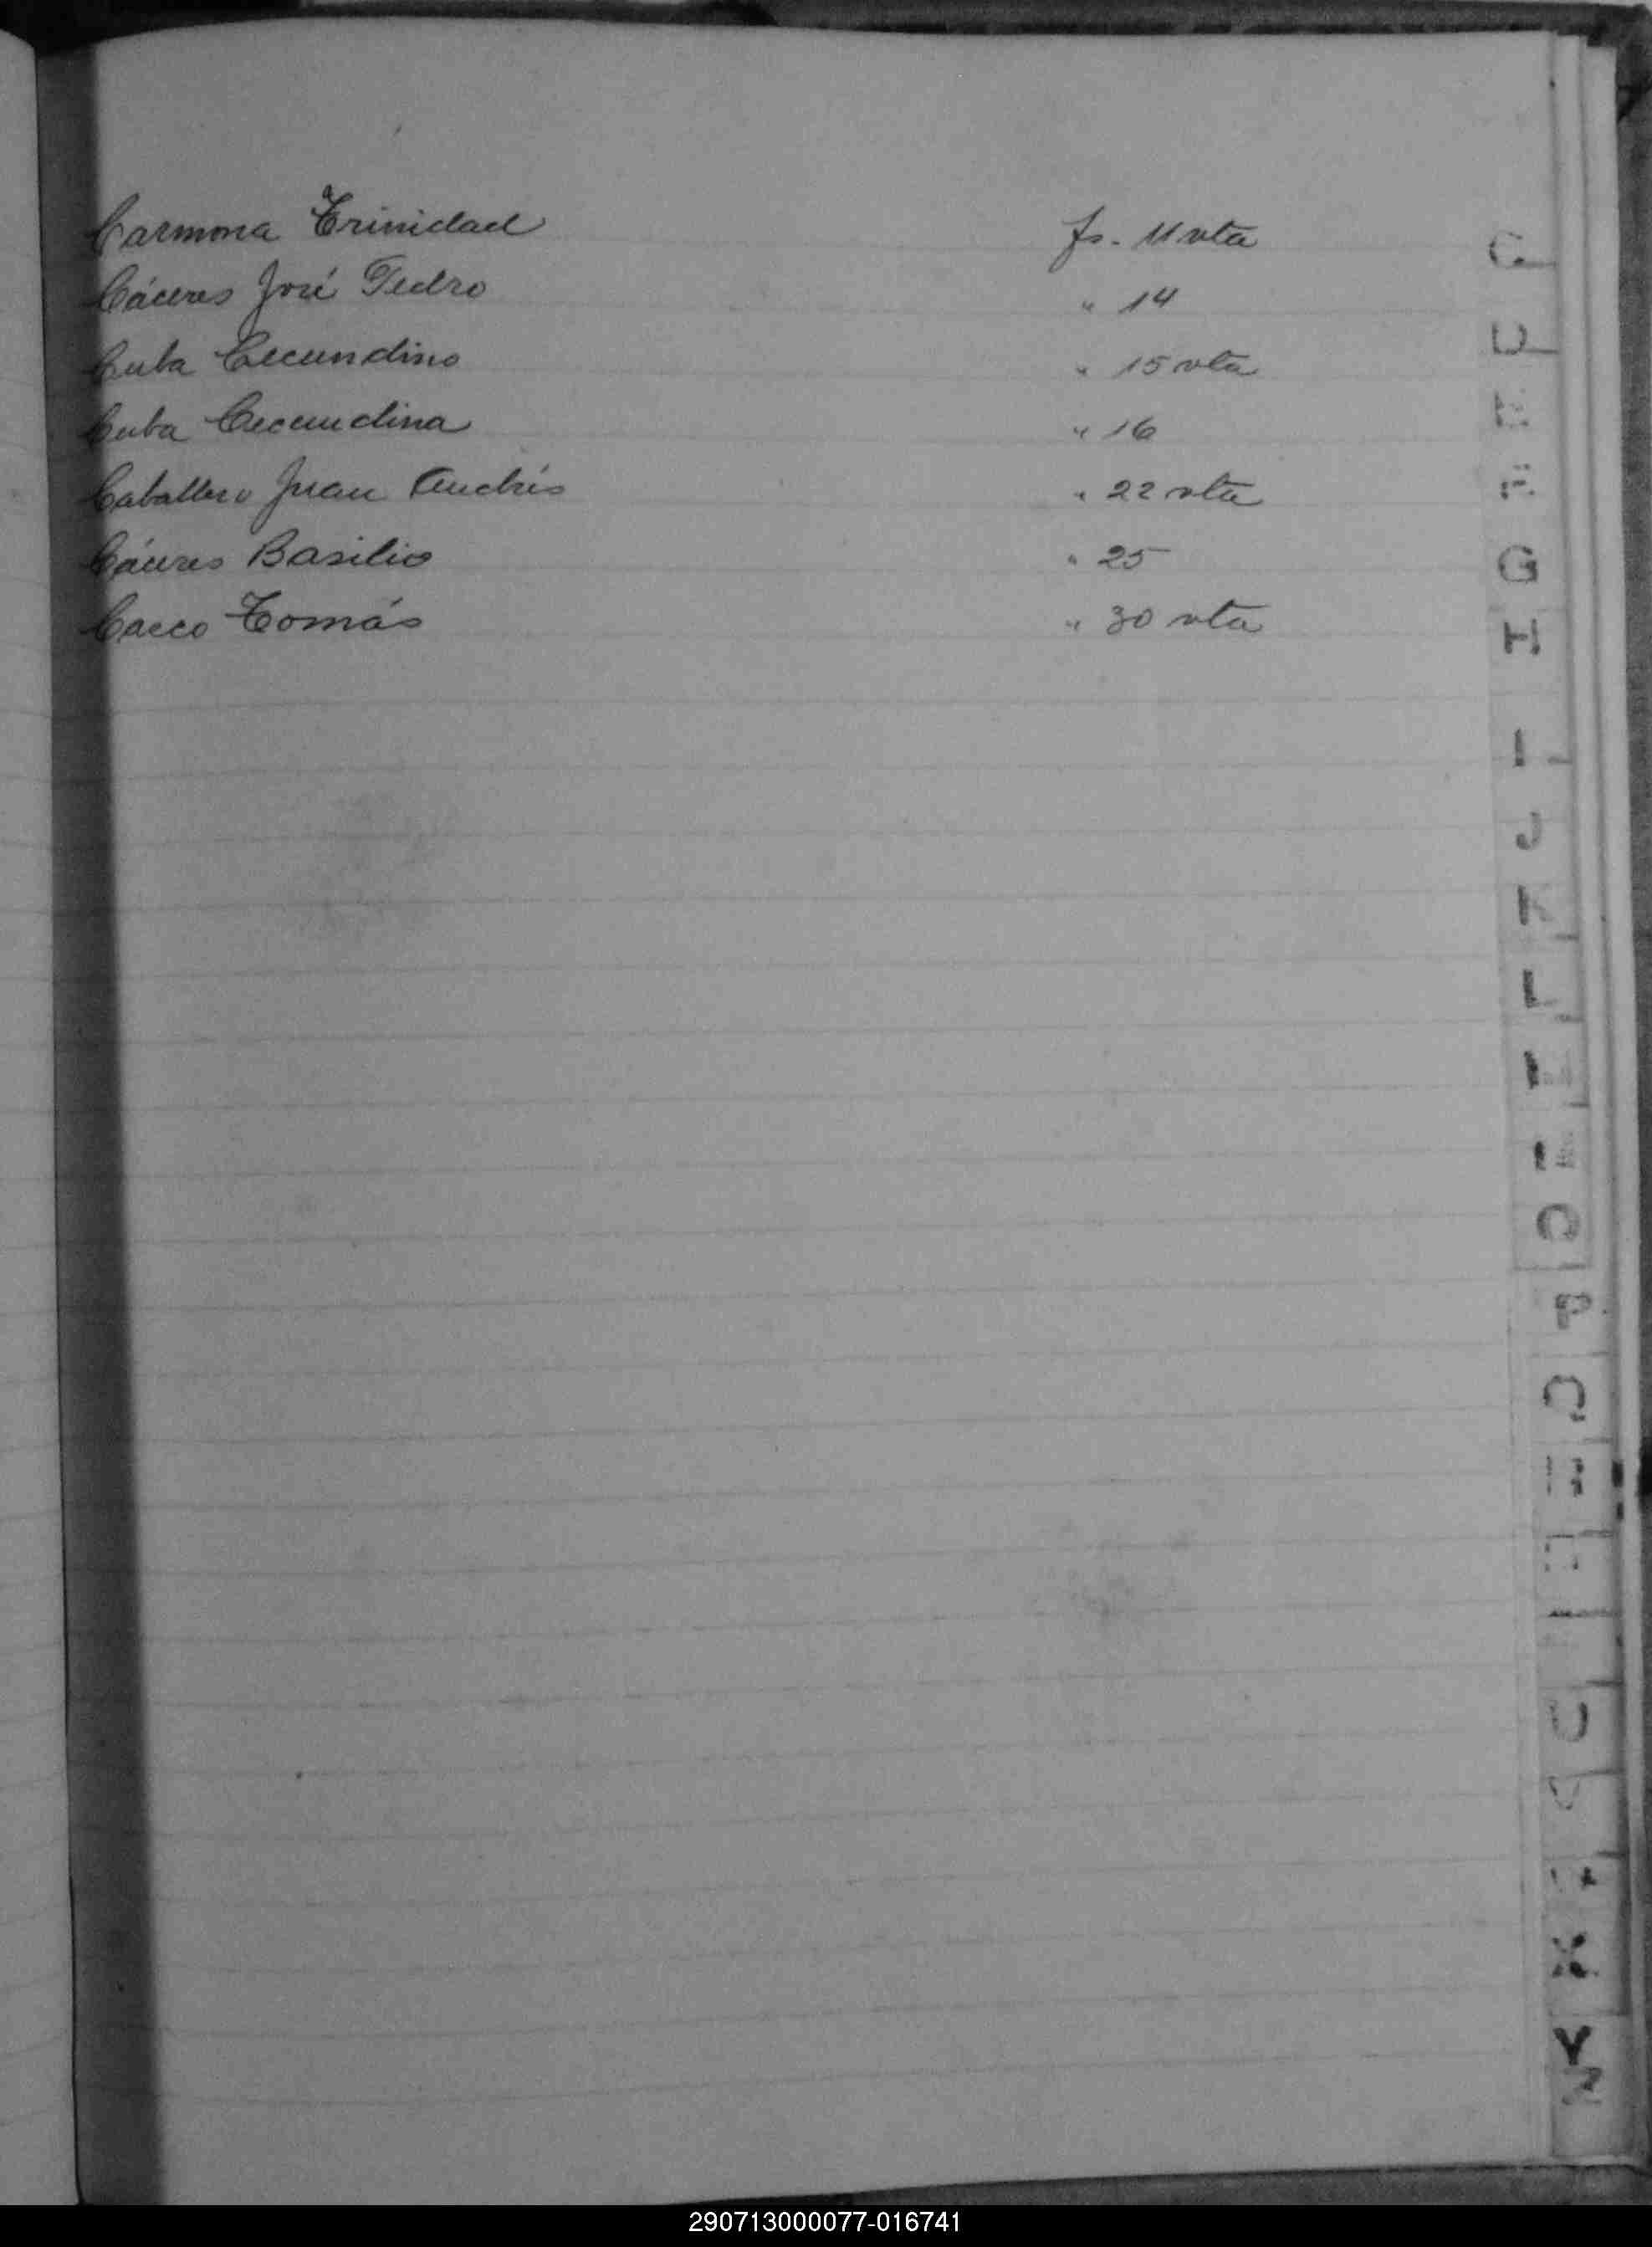 Carmona Trinidad fs. 11 vta
Cáceres José Pedro " 14
Cuba Cecundino " 15 vta
Cuba Cecundina " 16
Caballero Juan Andrés " 22 vta
Cáceres Basilio " 25
Cacco Tomás " 30 vta
C
D
E
F
G
H
I
J
K
L
O
P
Q
U
V
X
Y
Z
290713000077-016741